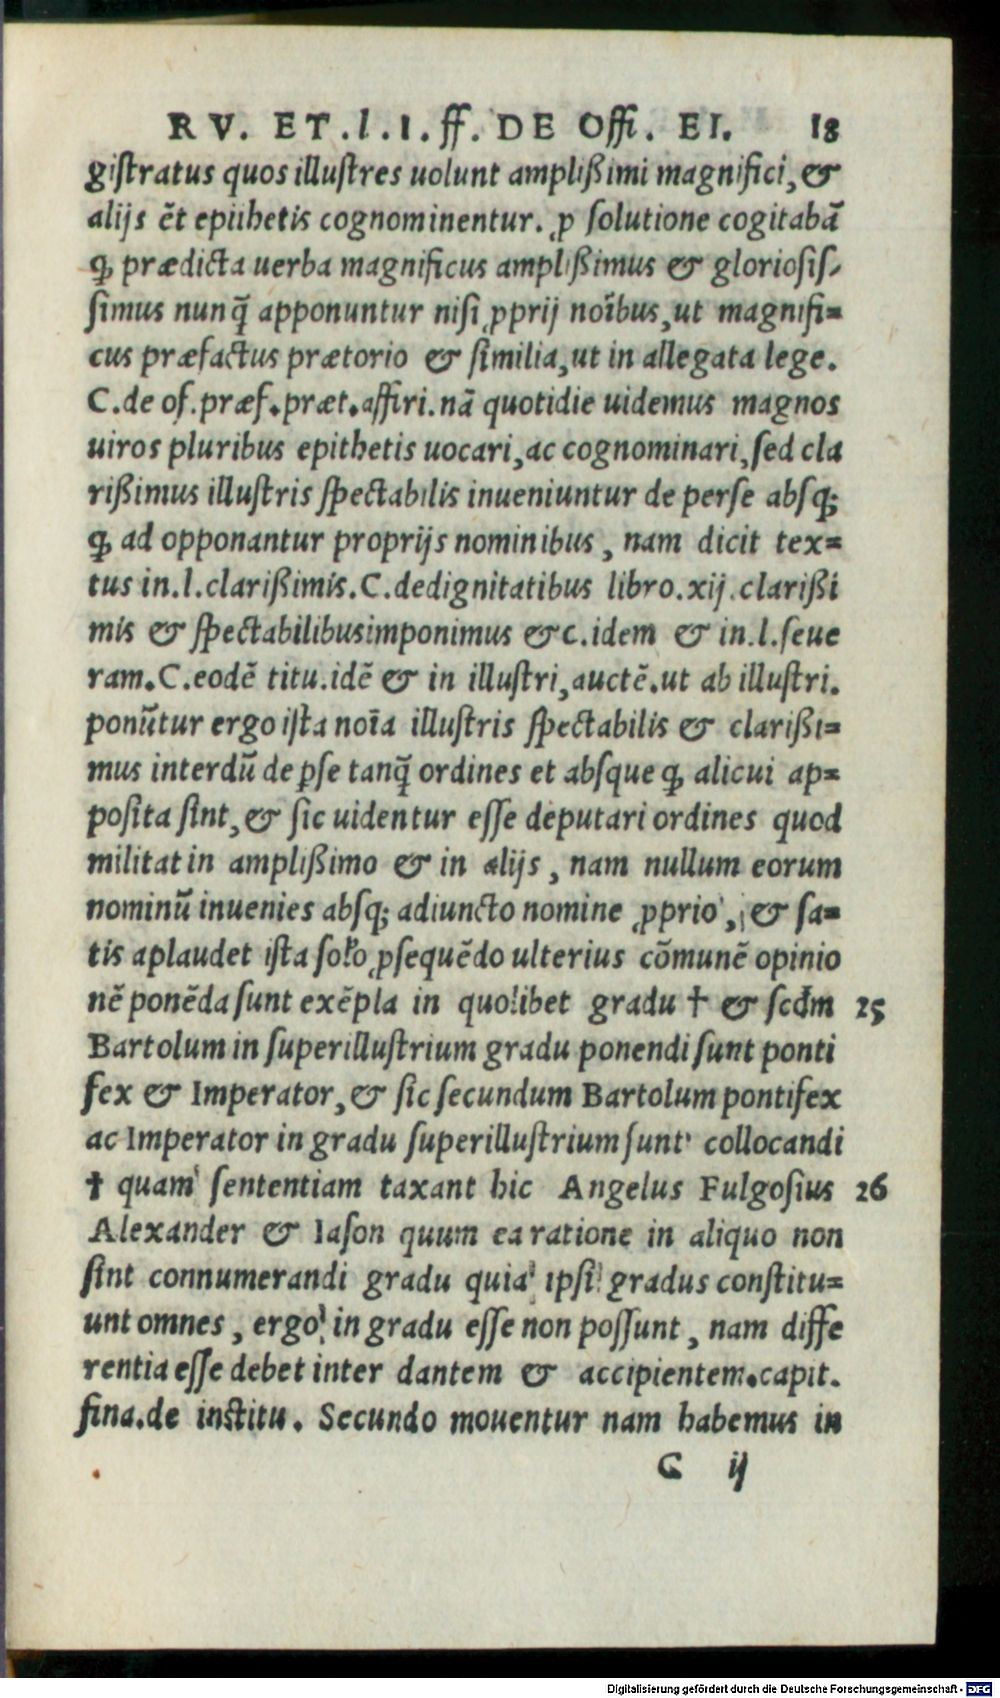 RV. ET .l.1.ff. DE Offi. EI. 18
giſtratus quos illuſtres uolunt ampliſsimi magnifici, &
alijs ēt epithetis cognominentur. ꝓ ſolutione cogitabā
ꝙ prædicta uerba magnificus ampliſsimus & glorioſiſ-
ſimus nunq̄ apponuntur niſi ꝓprij noībus, ut magnifi=
cus præfactus prætorio & ſimilia, ut in allegata lege.
C. de of. præf. præt. affiri. nā quotidie uidemus magnos
uiros pluribus epithetis uocari, ac cognominari, ſed cla
riſsimus illuſtris ſpectabilis inueniuntur de perſe abſq;
ꝙ ad opponantur proprijs nominibus, nam dicit tex=
tus in. l. clariſsimis. C. dedignitatibus libro. xij. clariſsi
mis & ſpectabilibusimponimus &c. idem & in. l. ſeue
ram. C. eodē titu. idē & in illuſtri, auctē. ut ab illuſtri.
ponūtur ergo iſta noīa illuſtris ſpectabilis & clariſsi=
mus interdū de ꝑſe tanq̄ ordines et abſque ꝙ alicui ap=
poſita ſint, & ſic uidentur eſſe deputari ordines quod
militat in ampliſsimo & in alijs, nam nullum eorum
nominū inuenies abſq; adiuncto nomine ꝓprio, & ſa=
tis aplaudet iſta ſolo ꝓſequēdo ulterius cōmunē opinio
nē ponēda ſunt exēpla in quolibet gradu † & ſcdm 25
Bartolum in ſuperilluſtrium gradu ponendi ſunt ponti
fex & Imperator, & ſic ſecundum Bartolum pontifex
ac Imperator in gradu ſuperilluſtrium ſunt collocandi
† quam ſententiam taxant hic Angelus Fulgoſius 26
Alexander & Iaſon quum ea ratione in aliquo non
ſint connumerandi gradu quia ipſi gradus conſtitu=
unt omnes, ergo in gradu eſſe non poſſunt, nam diffe
rentia eſſe debet inter dantem & accipientem. capit.
fina. de inſtitu. Secundo mouentur nam habemus in
C ij
Digitalisierung gefördert durch die Deutsche Forschungsgemeinschaft - DFG